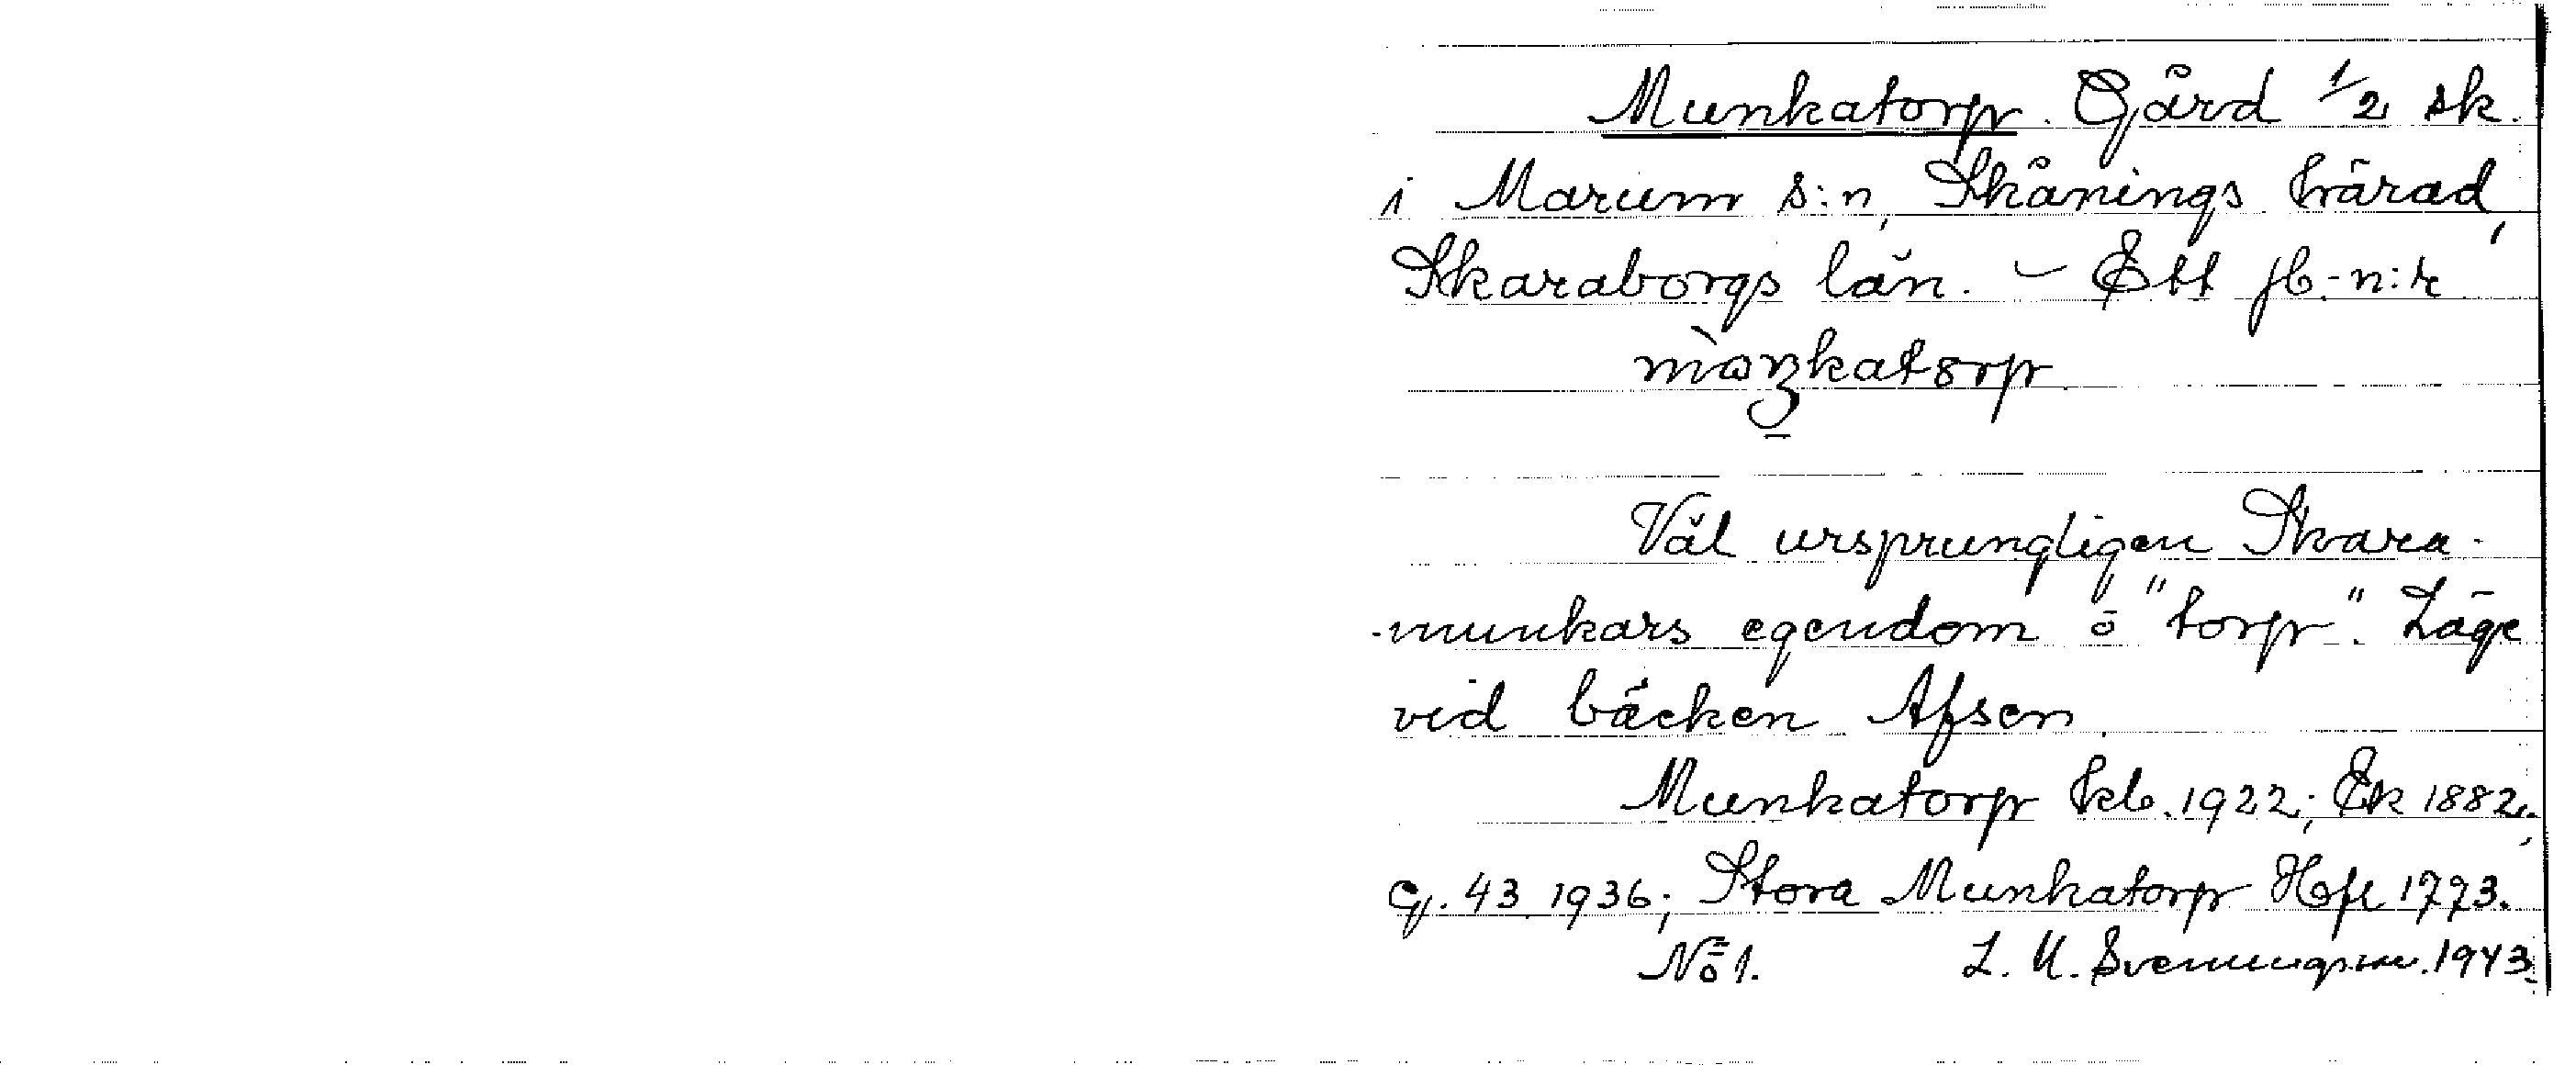 Munkatorp. Gård 1/2 sk.
i Marum s:n, Skånings härad,
Skaraborgs län. – Ett jb.-n:r
Väl ursprungligen Skara-
-munkars egendom o "torp". Läge
vid bäcken Afsen.
Munkatorp kb. 1922; Ek 1882;
G. 43 1936; Stora Munkatorp Hfl 1773.
No 1. L. U. Svenungsson. 1943.